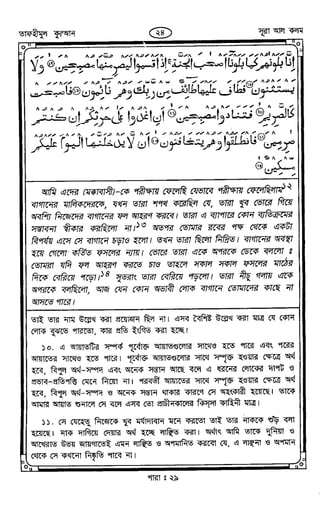 তাফহীমুল কুরআন
২৪
সূরা আল কলম
إِنَّا بَلَوْنٰهُمْ كَمَا بَلَوْنَآ اَصْحٰبَ الْجَنَّةِ ۚ اِذْ اَقْسَمُوْا لَيَصْرِمُنَّهَا مُصْبِحِيْنَ ۝ وَلَا
يَسْتَثْنُوْنَ ۝ فَطَافَ عَلَيْهَا طَآئِفٌ مِّنْ رَّبِّكَ وَهُمْ نَآئِمُوْنَ ۝ فَاَصْبَحَتْ
كَالصَّرِيْمِ ۝ فَتَنَادَوْا مُصْبِحِيْنَ ۝ اَنِ اغْدُوْا عَلٰى حَرْثِكُمْ اِنْ كُنْتُمْ
صٰرِمِيْنَ ۝ فَانْطَلَقُوْا وَهُمْ يَتَخَافَتُوْنَ ۝ اَنْ لَّا يَدْخُلَنَّهَا الْيَوْمَ عَلَيْكُمْ
مِّسْكِيْنٌ ۝
আমি এদের (মক্কাবাসী)-কে পরীক্ষায় ফেলেছি যেভাবে পরীক্ষায় ফেলেছিলাম১২
বাগানের মালিকদেরকে, যখন তারা শপথ করেছিল যে, তারা খুব ভোরে গিয়ে
অবশ্যি নিজেদের বাগানের ফল আহরণ করবে। তারা এ ব্যাপারে কোন ব্যতিক্রমের
সম্ভাবনা স্বীকার করছিলো না।১৩ অতপর তোমার রবের পক্ষ থেকে একটা
বিপর্যয় এসে সে বাগানে চড়াও হলো। তখন তারা ছিলো নিদ্রিত। বাগানের অবস্থা
হয়ে গেলো কর্তিত ফসলের ন্যায়। ভোরে তারা একে অপরকে ডেকে বললো ঃ
তোমরা যদি ফল আহরণ করতে চাও তাহলে সকাল সকাল ফসলের মাঠের
দিকে বেরিয়ে পড়ো।১৪ সুতরাং তারা বেরিয়ে পড়লো। তারা নীচু গলায় একে
অপরকে বলছিলো, আজ যেন কোন অভাবী লোক বাগানে তোমাদের কাছে না
আসতে পারে।
তাই তার নাম উল্লেখ করা প্রয়োজন ছিল না। এসব বৈশিষ্ট উল্লেখ করা মাত্র যে কোন
লোক বুঝতে পারতো, কার প্রতি ইংগিত করা হচ্ছে।
১০. এ আয়াতটির সম্পর্ক পূর্বোক্ত আয়াতগুলোর সাথেও হতে পারে এবং পরের
আয়াতের সাথেও হতে পারে। পূর্বোক্ত আয়াতগুলোর সাথে সম্পৃক্ত হওয়ার ক্ষেত্রে অর্থ
হবে, বিপুল অর্থ-সম্পদ এবং অনেক সন্তান আছে বলে এ ধরনের লোকের দাপট ও
প্রভাব-প্রতিপত্তি মেনে নিয়ো না। পরবর্তী আয়াতের সাথে সম্পৃক্ত হওয়ার ক্ষেত্রে অর্থ
হবে, বিপুল অর্থ-সম্পদ ও অনেক সন্তান থাকার কারণে সে অহংকারী হয়েছে। তাকে
আমার আয়াত শুনালে সে বলে এসব তো প্রাচীনকালের কিস্সা কাহিনী মাত্র।
১১. সে যেহেতু নিজেকে খুব মর্যাদাবান মনে করতো তাই তার নাককে শুঁড় বলা
হয়েছে। নাক দাগিয়ে দেয়ার অর্থ হচ্ছে লাঞ্ছিত করা। অর্থাৎ আমি তাকে দুনিয়া ও
আখেরাত উভয় জায়গাতেই এমন লাঞ্ছিত ও অপমানিত করবো যে, এ লাঞ্ছনা ও অপমান
থেকে সে কখনো নিষ্কৃতি পাবে না।
পারা ঃ ২৯